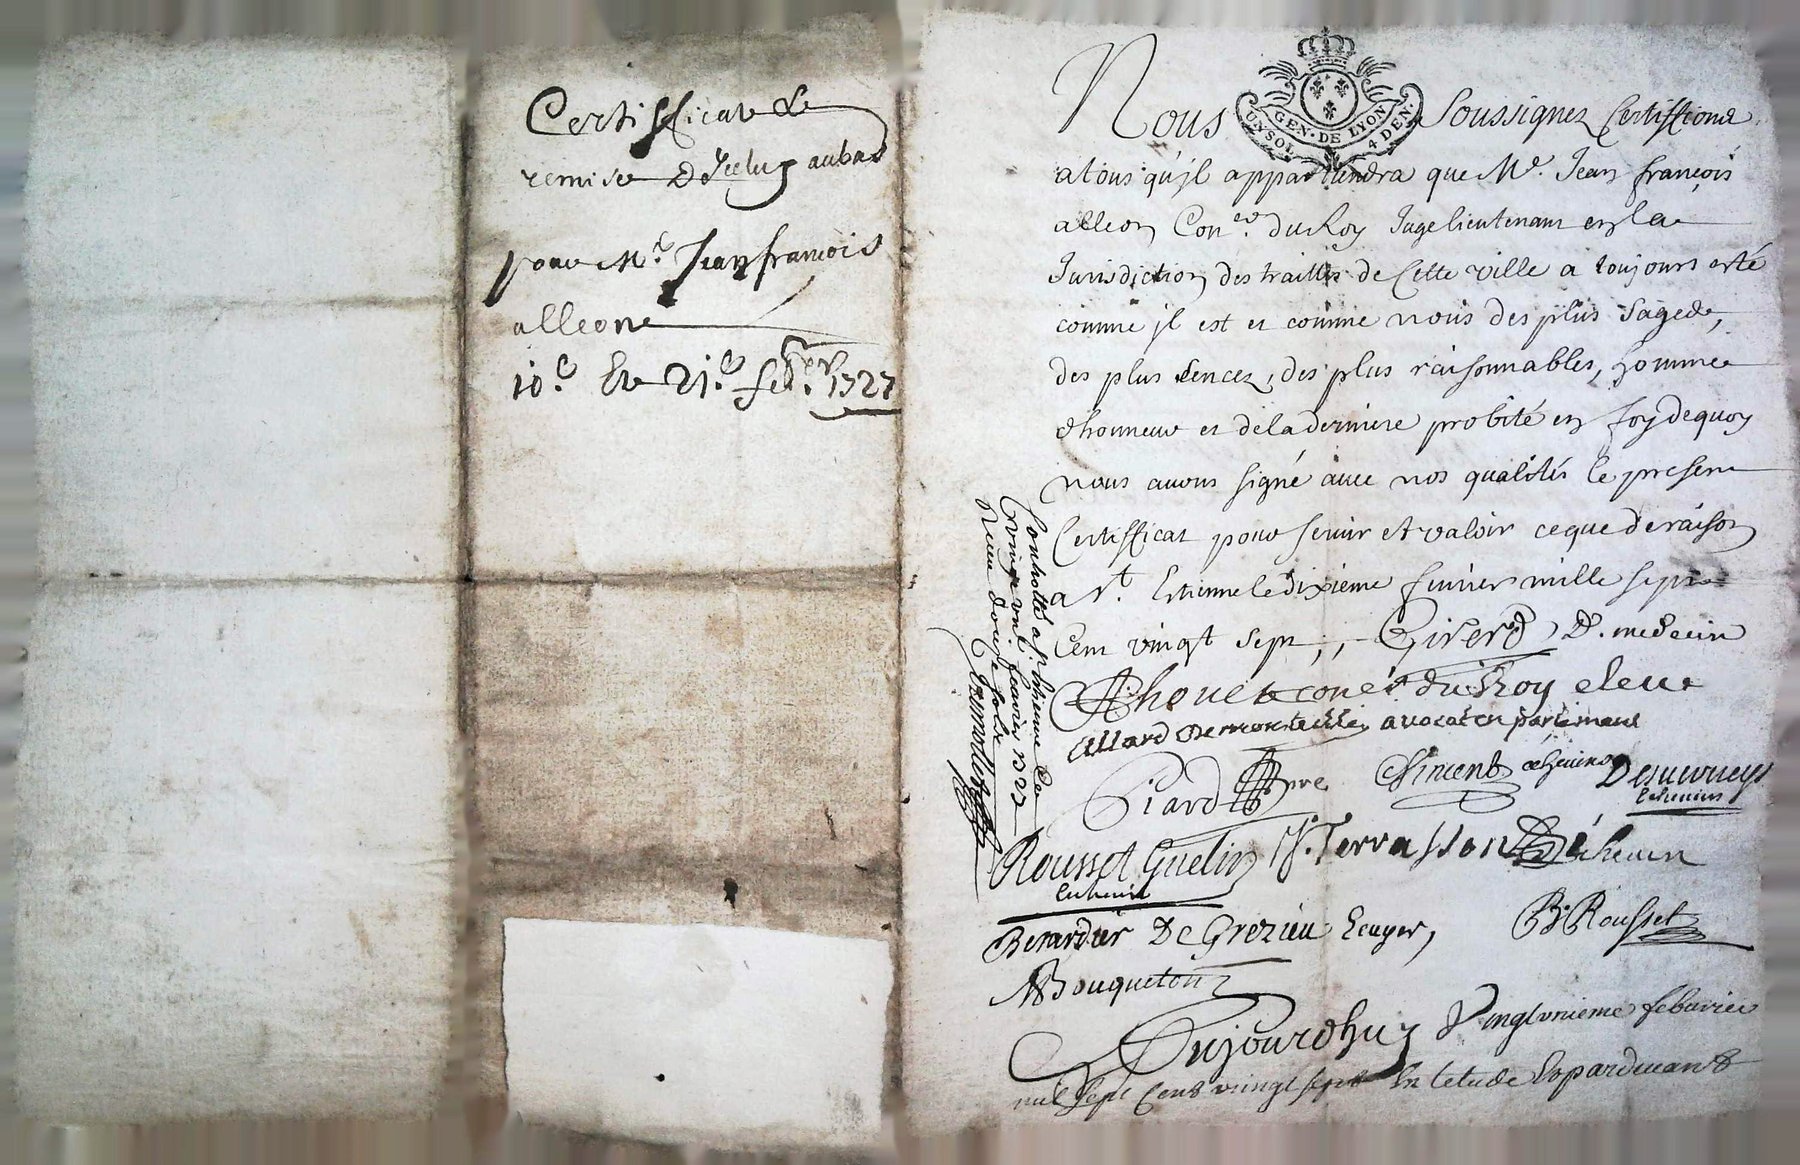 Certifficat de
remise d'Jceluy aubas
pour Mr. Jean francois
alleon
10e. Et 21e. febver. 1727
Nous Soussignez Certiffions
GEN. DE LYON
UN SOL 4 DEN.
a tous qu'jl appartiendra que Me. Jean françois
alleon Coner. du Roy Juge lieutenant en la
Jurisdiction des traittes de Cette ville a toujours esté
comme jl est et comme nous des plus sages,
des plus sencez, des plus raisonnables, homme
d'honneur et de la derniere probité en foy de quoy
nous avons signé avec nos qualités le present
Certifficat pour servir et valoir ce que de raison
a St. Estienne le dixieme fevrier mille sept
Cent vingt sept ;,- Girerd D. medecin
conér du Roy eleue
Allard avocat en parlement
Piard
Vincent echevino
Echevins
Rousset Guelin
Echevin
J. Terrasson échevin
Berardier De Grezieu Ecuyer,
B. Rousset
Bouqueton
Controllé a St. Estienne le
vingt un fevrier 1727
Receu douze sols
Aujourdhuy Vingtunieme febvrier
mil Sept Cent vingt sept En letude Et pardevant